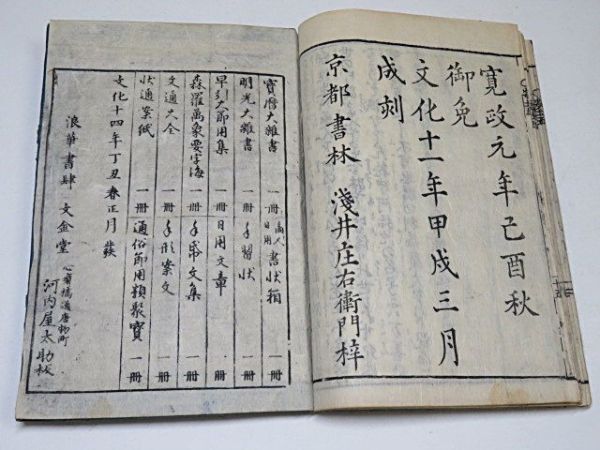 寛政元年己酉秋
御免
文化十一年甲戌三月
成刻
京都書林 淺井庄右衛門梓
寶暦大雜書 一冊 日用 書状箱 一冊
明光大雜書 一冊 手習状 一冊
早引大節用集 一冊 日用文章 一冊
森羅萬象要字海 一冊 文集 一冊
文通大全 一冊 手形案文 一冊
状通案紙 一冊 通俗節用類聚寶 一冊
文化十四年丁丑春正月
浪華書肆 文金堂 心齋橋通唐物町 河内屋太助